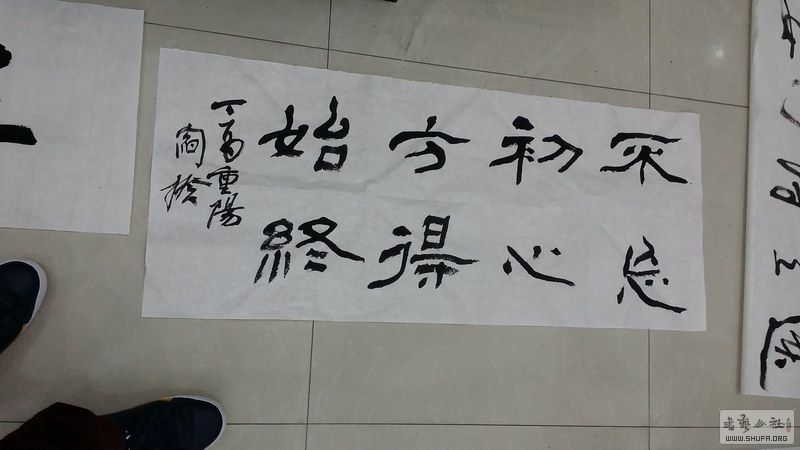 不忘
初心
方得
始終
丁酉重陽
書藝公社
WWW.SHUFA.ORG